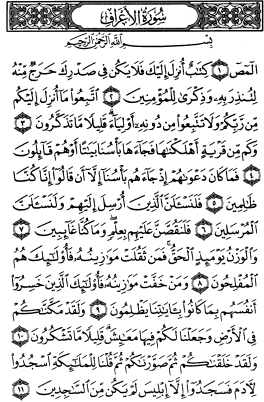 سُورَةُ الْأَعْرَافِ
بِسْمِ اللَّهِ الرَّحْمَٰنِ الرَّحِيمِ
الٓمٓصٓ ١ كِتَٰبٌ أُنزِلَ إِلَيْكَ فَلَا يَكُن فِى صَدْرِكَ حَرَجٌ مِّنْهُ
لِتُنذِرَ بِهِۦ وَذِكْرَىٰ لِلْمُؤْمِنِينَ ٢ ٱتَّبِعُوا۟ مَآ أُنزِلَ إِلَيْكُم
مِّن رَّبِّكُمْ وَلَا تَتَّبِعُوا۟ مِن دُونِهِۦٓ أَوْلِيَآءَ ۗ قَلِيلًا مَّا تَذَكَّرُونَ ٣
وَكَم مِّن قَرْيَةٍ أَهْلَكْنَٰهَا فَجَآءَهَا بَأْسُنَا بَيَٰتًا أَوْ هُمْ قَآئِلُونَ
٤ فَمَا كَانَ دَعْوَىٰهُمْ إِذْ جَآءَهُم بَأْسُنَآ إِلَّآ أَن قَالُوٓا۟ إِنَّا كُنَّا
ظَٰلِمِينَ ٥ فَلَنَسْـَٔلَنَّ ٱلَّذِينَ أُرْسِلَ إِلَيْهِمْ وَلَنَسْـَٔلَنَّ
ٱلْمُرْسَلِينَ ٦ فَلَنَقُصَّنَّ عَلَيْهِم بِعِلْمٍ ۖ وَمَا كُنَّا غَآئِبِينَ ٧
وَٱلْوَزْنُ يَوْمَئِذٍ ٱلْحَقُّ ۚ فَمَن ثَقُلَتْ مَوَٰزِينُهُۥ فَأُو۟لَٰٓئِكَ هُمُ
ٱلْمُفْلِحُونَ ٨ وَمَنْ خَفَّتْ مَوَٰزِينُهُۥ فَأُو۟لَٰٓئِكَ ٱلَّذِينَ خَسِرُوٓا۟
أَنفُسَهُم بِمَا كَانُوا۟ بِـَٔايَٰتِنَا يَظْلِمُونَ ٩ وَلَقَدْ مَكَّنَّٰكُمْ
فِى ٱلْأَرْضِ وَجَعَلْنَا لَكُمْ فِيهَا مَعَٰيِشَ ۗ قَلِيلًا مَّا تَشْكُرُونَ ١٠
وَلَقَدْ خَلَقْنَٰكُمْ ثُمَّ صَوَّرْنَٰكُمْ ثُمَّ قُلْنَا لِلْمَلَٰٓئِكَةِ ٱسْجُدُوا۟
لِـَٔادَمَ فَسَجَدُوٓا۟ إِلَّآ إِبْلِيسَ لَمْ يَكُن مِّنَ ٱلسَّٰجِدِينَ ١١